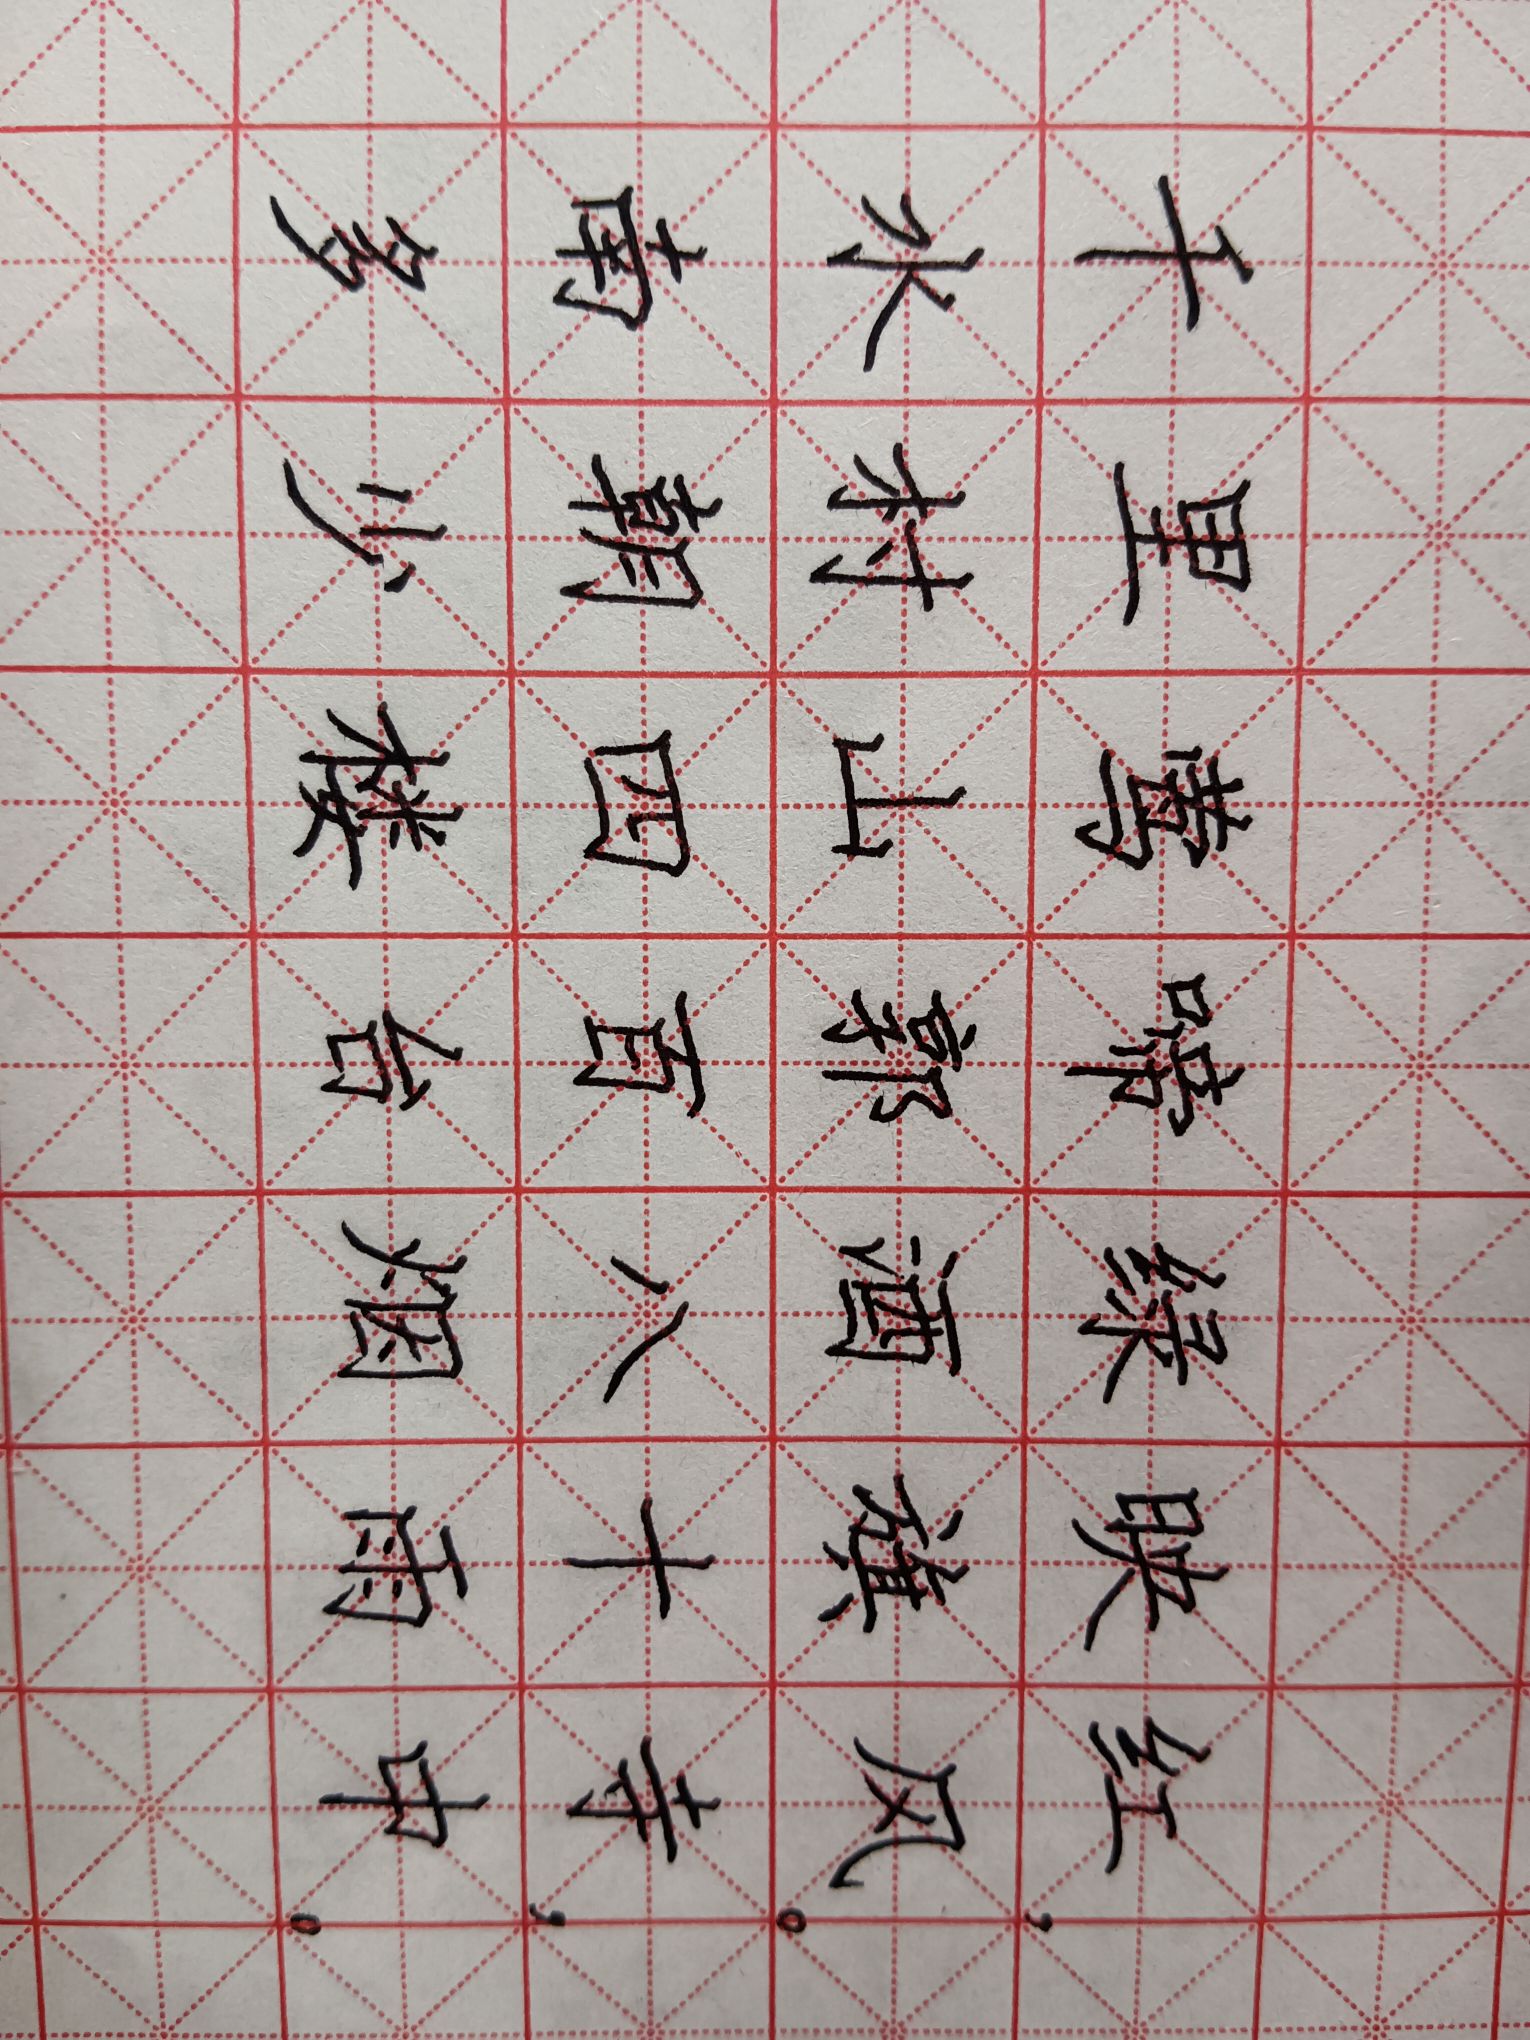 千里莺啼绿映红，
水村山郭酒旗风。
南朝四百八十寺，
多少楼台烟雨中。